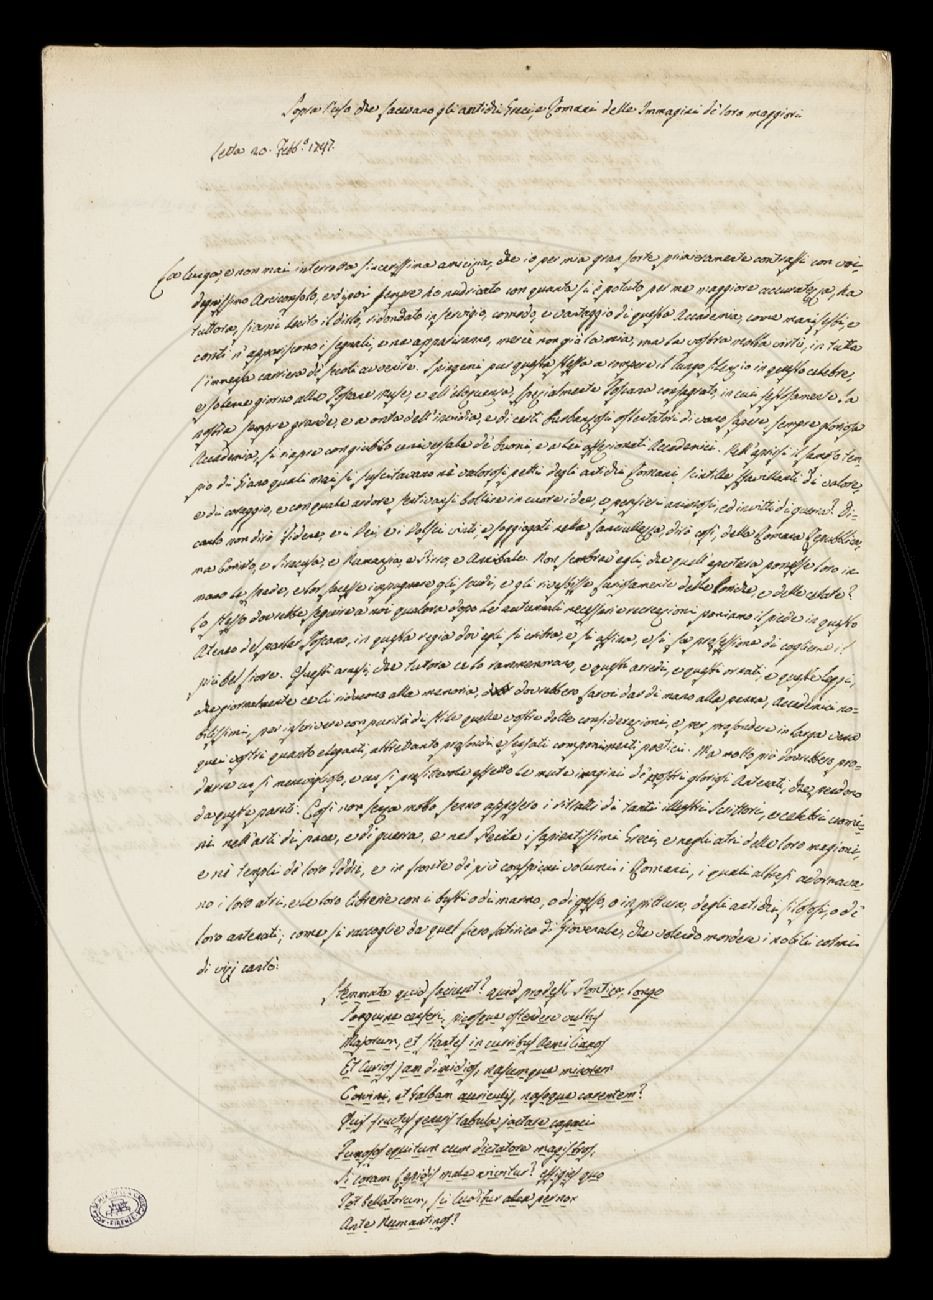 Sopra l'uso che facevano gli antichi Greci e Romani delle Immagini de' loro maggiori
Letta 20. Febb.º 1747.
La lunga, e non mai interrotta sincerissima amicizia, che io per mia gran sorte primieramente contrassi con voi,
degnissimo Arciconsolo, e dipoi sempre ho nudricato con quanta si è potuto per me maggiore accuratezza, ha
tuttora, siami lecito il dirlo, ridondato in servigio, comodo, e vantaggio di questa Accademia, come manifesti, e
conti n'appariscono i segnali, e ne appariranno, mercè non già la mia, ma la vostra molta virtù, in tutta
l'immensa carriera de' secoli avvenire. Spingemi pur questa stessa a rompere il lungo silenzio in questo celebre,
e solenne giorno alle Toscane Muse, e all'eloquenza, specialmente Toscana consagrato, in cui festosamente la
nostra sempre grande, e a onta dell'invidia, e di certi burbanzosi ostentatori di vano sapere, sempre gloriosa
Accademia, si riapre con giubbilo universale de' buoni, e a lei affezionati Accademici. Nell'aprirsi il santo tem-
pio di Giano quali mai si suscitavano ne' valorosi petti degli antichi Romani scintille sfavillanti di valore,
e di coraggio, e con quale ardore sentivansi bollire in cuore idee, e pensieri animosi, ed invitti di guerra? Di-
canlo non dirò Fidene, e i Vei, e i Volsci vinti, e soggiogati nella fanciullezza, dirò così, della Romana Repubblica,
ma Corinto, e Siracusa, e Numanzia, e Pirro, e Annibale. Non sembra egli, che quell'apertura ponesse loro in
mano le spade, e lor facesse impugnare gli scudi, e gli rivestisse parimente delle loriche, e delle celate?
Lo stesso dovrebbe seguire a noi qualora dopo le autunnali necessarie recreazioni poniamo il piede in questo
Ateneo del parlar Toscano, in questa regia dov'egli si cribra, e si affina, e si fa professione di coglierne il
più bel fiore. Questi arnesi, che tuttora ce lo rammemorano, e questi arredi, e questi ornati, e queste leggi,
che giornalmente ce li riducono alla memoria, dovrebbero farci dar di mano alla penna, Accademici no-
bilissimi, per iscrivere con purità di stile quelle vostre dotte considerazioni, e per profondere in larga vena
quei vostri quanto eleganti, altrettanto profondi e sensati componimenti poetici. Ma molto più dovrebbero pro-
durre un sì maraviglioso, e un sì profittevole effetto le mute imagini de' nostri gloriosi Antenati, che pendono
da queste pareti. Così non senza molto senno appesero i ritratti di tanti illustri Scrittori, e celebri uomi-
ni nell'arti di pace, e di guerra, e nel Pecile i sapientissimi Greci, e negli atri delle loro magioni,
e ne' templi de' loro Iddii, e in fronte de' più conspicui volumi i Romani, i quali altresì adornava-
no i loro atri, e le loro Librerie con i busti o di marmo, o di gesso, o in pittura, degli antichi filosofi, o de'
loro antenati; come si raccoglie da quel fiero satirico di Giovenale, che volendo mordere i nobili colmi
di vizj cantò:
Stemmata quid faciunt? quid prodest, Pontice, longo
Sanguine censeri, pictosque ostendere vultus
Majorum, et stantes in curribus Aemilianos
Et Curios jam dimidios, nasumque minorem
Corvini, et Galbam auriculis, nasoque carentem?
Quis fructus generis tabula jactare capaci
Fumosos equitum cum dictatore magistros,
Si coram Lepidis male vivitur? effigies quo
Tot bellatorum, si luditur alea pernox
Ante Numantinos?